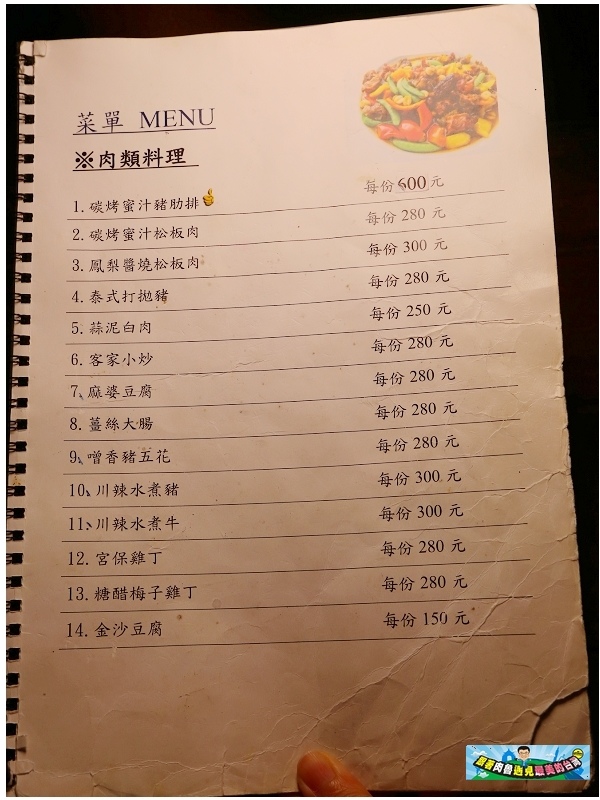 菜單 MENU
※肉類料理
1. 碳烤蜜汁豬肋排 每份 600 元
2. 碳烤蜜汁松板肉 每份 280 元
3. 鳳梨醬燒松板肉 每份 300 元
4. 泰式打拋豬 每份 280 元
5. 蒜泥白肉 每份 250 元
6. 客家小炒 每份 280 元
7、麻婆豆腐 每份 280 元
8. 薑絲大腸 每份 280 元
9、噌香豬五花 每份 280 元
10、川辣水煮豬 每份 300 元
11、川辣水煮牛 每份 300 元
12. 宮保雞丁 每份 280 元
13. 糖醋梅子雞丁 每份 280 元
14. 金沙豆腐 每份 150 元
跟著肉魯遇見最美的台灣